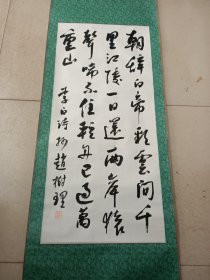 朝辞白帝彩云间千
里江陵一日还两岸猿
声啼不住轻舟已过万
重山
李白诗抄赵树理